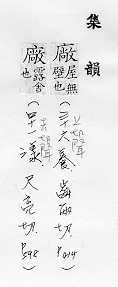 集韻
廠 屋無壁也 (三十六養.齒兩切.P.414)
上聲
廠 露舍也 (四十一漾.尺亮切.P.598)
去聲